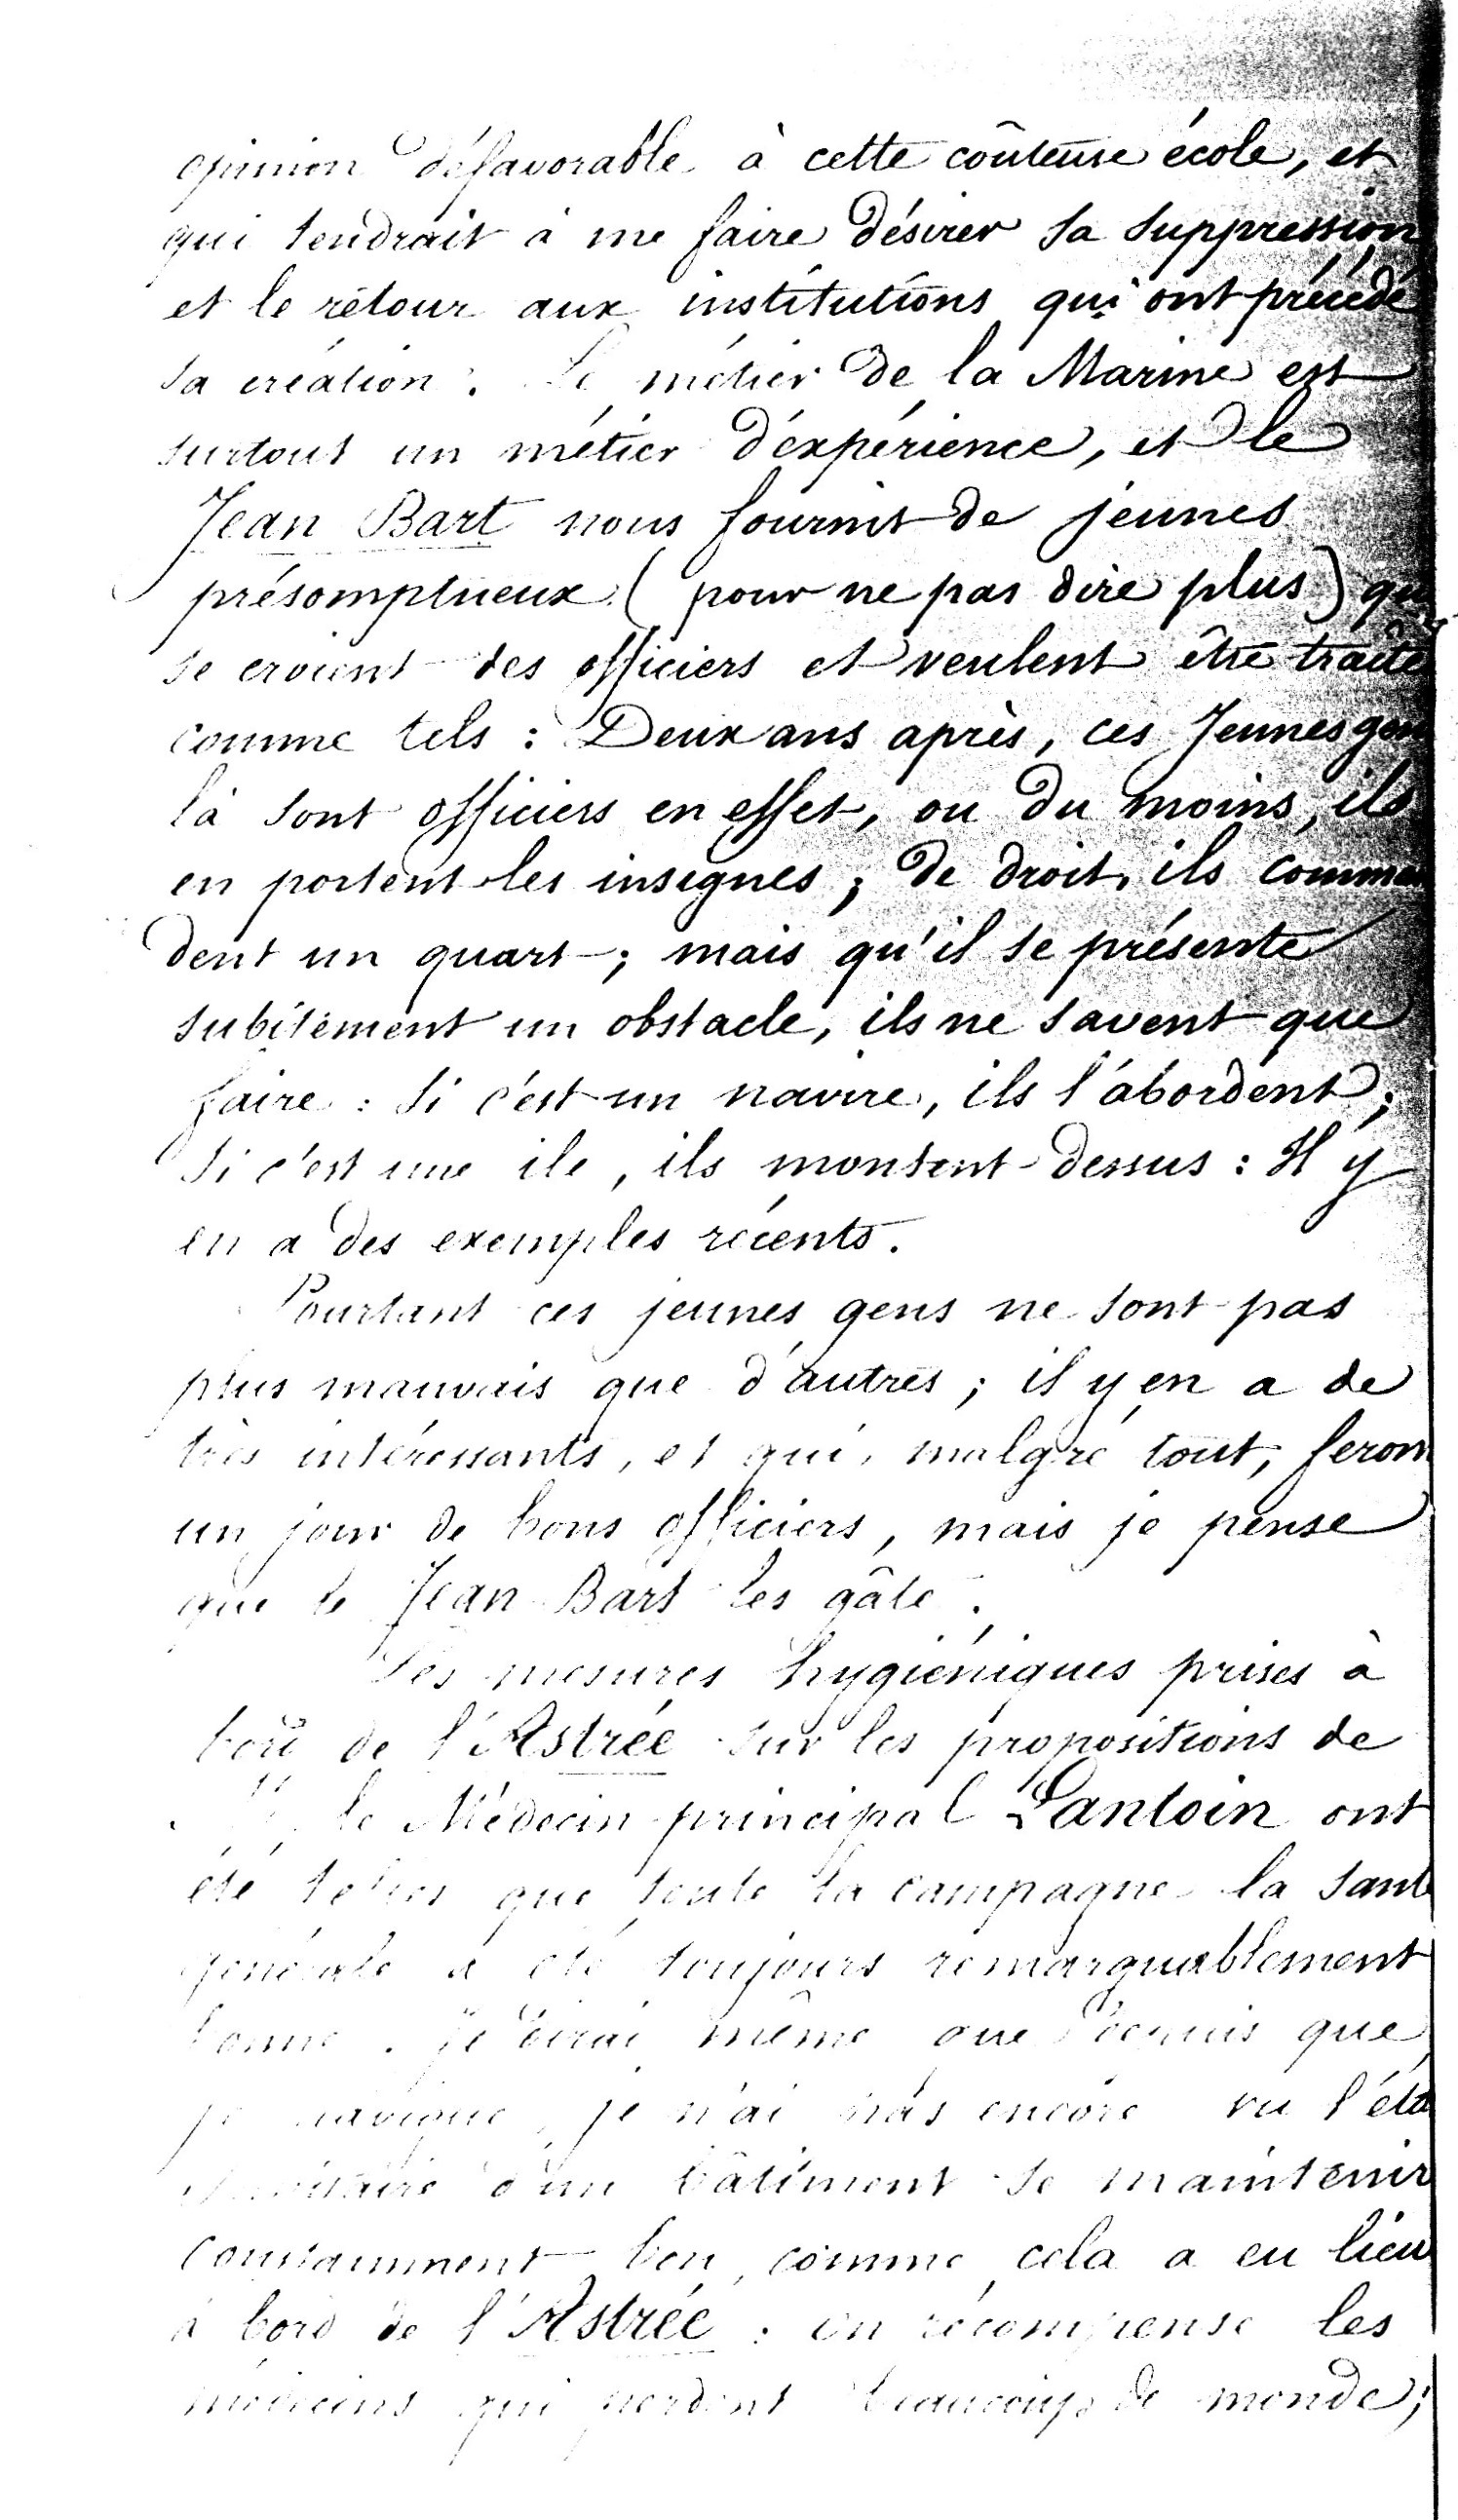 opinion défavorable à cette coûteuse école, et
qui tendrait à me faire désirer sa suppression
et le retour aux institutions qui ont précédé
sa création. Le métier de la Marine est
surtout un métier d'expérience, et le
Jean Bart nous fournit de jeunes
présomptueux (pour ne pas dire plus) qui
se croient des officiers et veulent être traité
comme tels : Deux ans après, ces Jeunes gen
là sont officiers en effet, ou du moins, ils
en portent les insignes ; de droit, ils comman
dent un quart ; mais qu'il se présente
subitement un obstacle, ils ne savent que
faire : si c'est un navire, ils l'abordent ;
si c'est une ile, ils montent dessus : Il y
en a des exemples récents.
Pourtant ces jeunes gens ne sont pas
plus mauvais que d'autres ; il y en a de
très intéressants, et qui, malgré tout, feron
un jour de bons officiers, mais je pense
que le Jean Bart les gâte.
Les mesures hygiéniques prises à
bord de l'Astrée sur les propositions de
le Médecin principal Lantoin ont
été telles que toute la campagne la santé
générale a été toujours remarquablement
bonne. Je dirai même que depuis que
je navigue, je n'ai pas encore vu l'éta
sanitaire d'un bâtiment se maintenir
constamment bon, comme cela a eu lieu
à bord de l'Astrée : on récompense les
médecins qui perdent beaucoup de monde ;